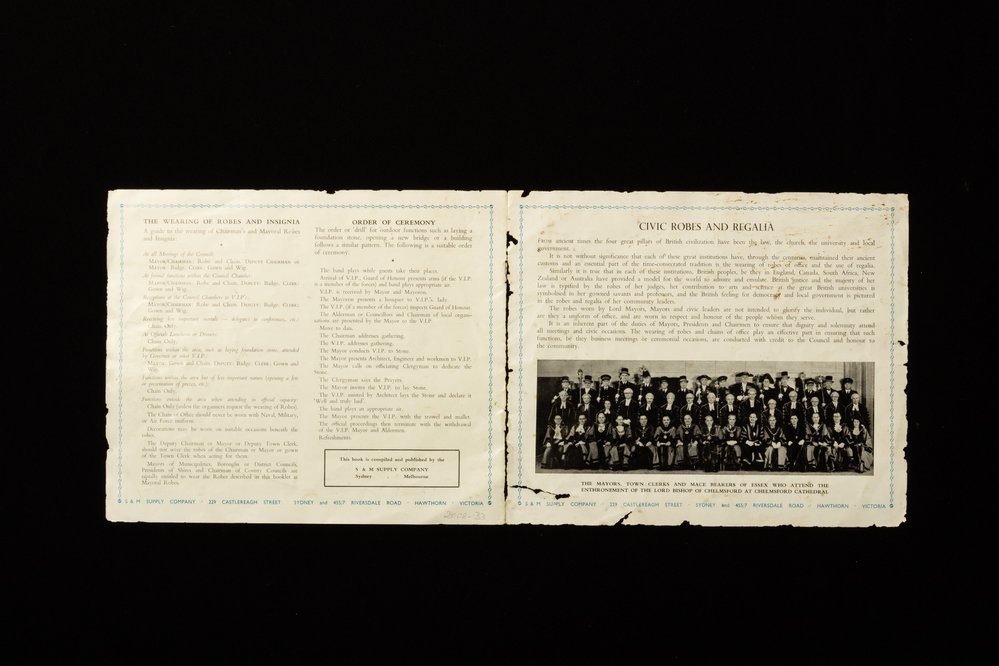 THE WEARING OF ROBES AND INSIGNIA
A guide to the wearing of Chairman's and Mayoral Robes
and Insignia:
At all Meetings of the Council:
MAYOR/CHAIRMAN: Robe and Chain. DEPUTY CHAIRMAN or
MAYOR: Badge. CLERK: Gown and Wig.
At formal functions within the Council Chamber:
MAYOR/CHAIRMAN: Robe and Chain. DEPUTY: Badge. CLERK:
Gown and Wig.
Receptions at the Council Chambers to V.I.P.'s:
MAYOR/CHAIRMAN: Robe and Chain. DEPUTY: Badge. CLERK:
Gown and Wig.
Receiving less important — delegates to conferences, etc.:
Chain Only.
At Official Luncheon or Dinners:
Chain Only.
Functions within the area, such as laying foundation stone, attended
by Governor or other V.I.P.:
MAYOR: Gown and Chain. DEPUTY: Badge. CLERK: Gown and
Wig.
Functions within the area but of less important nature (opening a fete
or presentation of prizes, etc.):
Chain Only.
Functions outside the area when attending in official capacity:
Chain Only (unless the organisers request the wearing of Robes).
The Chain of Office should never be worn with Naval, Military,
or Air Force uniform.
Decorations may be worn on suitable occasions beneath the
robes.
The Deputy Chairman or Mayor or Deputy Town Clerk,
should not wear the robes of the Chairman or Mayor or gown
of the Town Clerk when acting for them.
Mayors of Municipalities, Boroughs or District Councils,
Presidents of Shires and Chairman of County Councils are
equally entitled to wear the Robes described in this booklet as
Mayoral Robes.
ORDER OF CEREMONY
The order or 'drill' for outdoor functions such as laying a
foundation stone, opening a new bridge or a building
follows a similar pattern. The following is a suitable order
of ceremony.
The band plays while guests take their places.
Arrival of V.I.P., Guard of Honour presents arms (if the V.I.P.
is a member of the forces) and band plays appropriate air.
V.I.P. is received by Mayor and Mayoress.
The Mayoress presents a bouquet to V.I.P.'s lady.
The V.I.P. (if a member of the forces) inspects Guard of Honour.
The Alderman or Councillors and Chairman of local organi-
sations are presented by the Mayor to the V.I.P.
Move to dais.
The Chairman addresses gathering.
The V.I.P. addresses gathering.
The Mayor conducts V.I.P. to Stone.
The Mayor presents Architect, Engineer and workmen to V.I.P.
The Mayor calls on officiating Clergyman to dedicate the
Stone.
The Clergyman says the Prayers.
The Mayor invites the V.I.P. to lay Stone.
The V.I.P. assisted by Architect lays the Stone and declares it
'Well and truly laid'.
The band plays an appropriate air.
The Mayor presents the V.I.P. with the trowel and mallet.
The official proceedings then terminate with the withdrawal
of the V.I.P. Mayor and Aldermen.
Refreshments.
This book is compiled and published by the
S & M SUPPLY COMPANY
Sydney - Melbourne
S & M SUPPLY COMPANY · 229 CASTLEREAGH STREET · SYDNEY and 455/7 RIVERSDALE ROAD · HAWTHORN · VICTORIA
CIVIC ROBES AND REGALIA
FROM ancient times the four great pillars of British civilization have been the law, the church, the university and local
government.
It is not without significance that each of these great institutions have, through the centuries, maintained their ancient
customs and an essential part of the time-consecrated tradition is the wearing of robes of office and the use of regalia.
Similarly it is true that in each of these institutions, British peoples, be they in England, Canada, South Africa, New
Zealand or Australia have provided a model for the world to admire and emulate. British justice and the majesty of her
law is typified by the robes of her judges, her contribution to arts and science at the great British universities is
symbolised in her gowned savants and professors, and the British feeling for democracy and local government is pictured
in the robes and regalia of her community leaders.
The robes worn by Lord Mayors, Mayors and civic leaders are not intended to glorify the individual, but rather
are they a uniform of office, and are worn in respect and honour of the people whom they serve.
It is an inherent part of the duties of Mayors, Presidents and Chairmen to ensure that dignity and solemnity attend
all meetings and civic occasions. The wearing of robes and chains of office play an effective part in ensuring that such
functions, be they business meetings or ceremonial occasions, are conducted with credit to the Council and honour to
the community.
THE MAYORS, TOWN CLERKS AND MACE BEARERS OF ESSEX WHO ATTEND THE
ENTHRONEMENT OF THE LORD BISHOP OF CHELMSFORD AT CHELMSFORD CATHEDRAL
S & M SUPPLY COMPANY · 229 CASTLEREAGH STREET · SYDNEY and 455/7 RIVERSDALE ROAD · HAWTHORN · VICTORIA